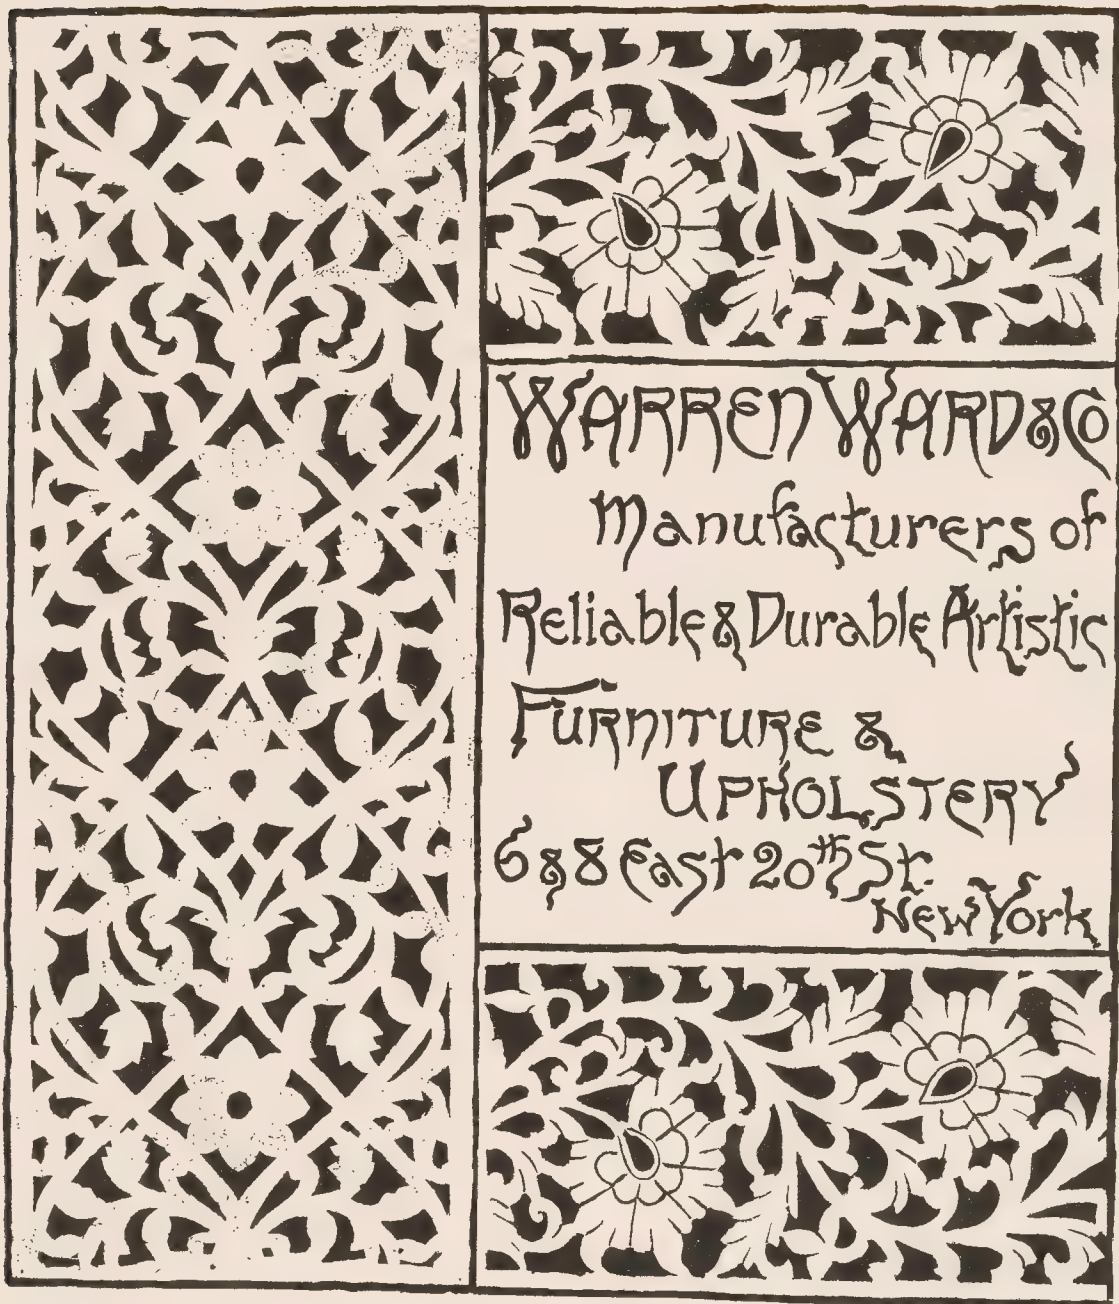 WARREN WARD & Co
Manufacturers of
Reliable & Durable Artistic
FURNITURE &
UPHOLSTERY
6 & 8 East 20th St.
New York